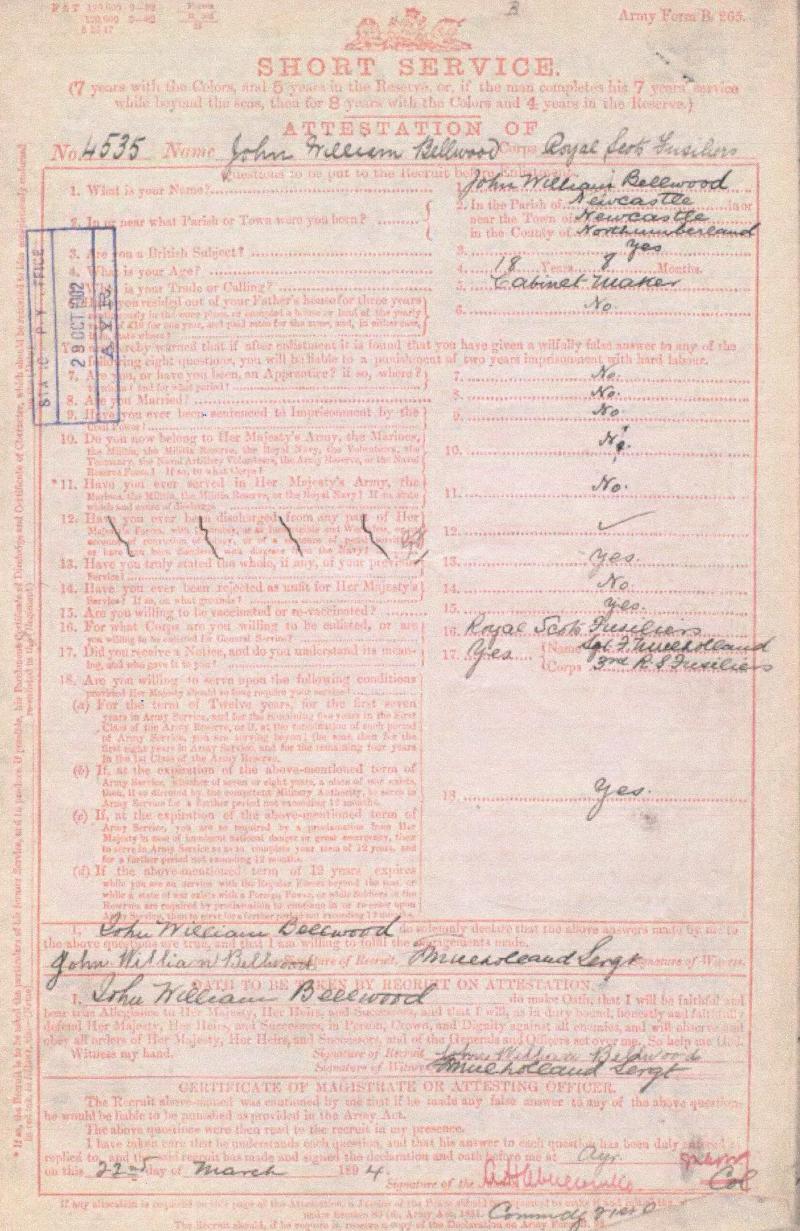 Army Form B. 265.
SHORT SERVICE.
(7 years with the Colors, and 5 years in the Reserve, or, if the man completes his 7 years' service
while beyond the seas, then for 8 years with the Colors and 4 years in the Reserve.)
ATTESTATION OF
No. 4535 Name John William Bellwood Corps Royal Scots Fusiliers
Questions to be put to the Recruit before Enlistment.
1. What is your Name? 1. John William Bellwood
2. In or near what Parish or Town were you born? 2. In the Parish of Newcastle in or
near the Town of Newcastle
in the County of Northumberland
3. Are you a British Subject? 3. Yes
4. What is your Age? 4. 18 Years 8 Months.
5. What is your Trade or Calling? 5. Cabinet Maker
you resided out of your Father's house for three years 6. No.
29 OCT 1902
AYR
hereby warned that if after enlistment it is found that you have given a wilfully false answer to any of the
following eight questions, you will be liable to a punishment of two years imprisonment with hard labour.
7. Are you, or have you been, an Apprentice? if so, where? 7. No.
8. Are you Married? 8. No.
9. Have you ever been sentenced to Imprisonment by the 9. No.
Civil Power?
10. Do you now belong to Her Majesty's Army, the Marines, 10. No.
the Militia, the Militia Reserve, the Royal Navy, the Volunteers, the
Yeomanry, the Naval Artillery Volunteers, the Army Reserve, or the Naval
Reserve Force? If so, to what Corps?
*11. Have you ever served in Her Majesty's Army, the 11. No.
Marines, the Militia, the Militia Reserve, or the Royal Navy? If so, state
which and cause of discharge
12. Have you ever been discharged from any part of Her 12.
13. Have you truly stated the whole, if any, of your previous 13. Yes.
Service?
14. Have you ever been rejected as unfit for Her Majesty's 14. No.
Service? If so, on what grounds?
15. Are you willing to be vaccinated or re-vaccinated? 15. Yes.
16. For what Corps are you willing to be enlisted, or are 16. Royal Scots Fusiliers
you willing to be enlisted for General Service?
17. Did you receive a Notice, and do you understand its mean- 17. Yes Name Sgt F Mulholland
ing, and who gave it to you? Corps 3rd R S Fusiliers
18. Are you willing to serve upon the following conditions
provided Her Majesty should so long require your service?
(a) For the term of Twelve years, for the first seven
years in Army Service, and for the remaining five years in the First
Class of the Army Reserve, or if, at the termination of such period
of Army Service, you are serving beyond the seas, then for the
first eight years in Army Service, and for the remaining four years
in the 1st Class of the Army Reserve.
(b) If, at the expiration of the above-mentioned term of
Army Service, whether of seven or eight years, a state of war exists,
then, if so directed by the competent Military Authority, to serve in
Army Service for a further period not exceeding 12 months. 18. Yes.
(c) If, at the expiration of the above-mentioned term of
Army Service, you are so required by a proclamation from Her
Majesty in case of imminent national danger or great emergency, then
to serve in Army Service so as to complete your term of 12 years, and
for a further period not exceeding 12 months.
(d) If the above-mentioned term of 12 years expires
while you are on service with the Regular Forces beyond the seas, or
while a state of war exists with a Foreign Power, or while Soldiers in the
Reserve are required by proclamation to continue in or re-enter upon
Army Service, then to serve for a further period not exceeding 12 months.
I, John William Bellwood do solemnly declare that the above answers made by me to
the above questions are true, and that I am willing to fulfil the engagements made.
John William Bellwood Signature of Recruit. F Mulholland Sergt Signature of Witness.
OATH TO BE TAKEN BY RECRUIT ON ATTESTATION.
I, John William Bellwood do make Oath, that I will be faithful and
bear true Allegiance to Her Majesty, Her Heirs, and Successors, and that I will, as in duty bound, honestly and faithfully
defend Her Majesty, Her Heirs, and Successors, in Person, Crown, and Dignity against all enemies, and will observe and
obey all orders of Her Majesty, Her Heirs, and Successors, and of the Generals and Officers set over me. So help me God.
Witness my hand. Signature of Recruit John William Bellwood
Signature of Witness F Mulholland Sergt
CERTIFICATE OF MAGISTRATE OR ATTESTING OFFICER.
The Recruit above-named was cautioned by me that if he made any false answer to any of the above questions
he would be liable to be punished as provided in the Army Act.
The above questions were then read to the recruit in my presence.
I have taken care that he understands each question, and that his answer to each question has been duly entered as
replied to, and the said recruit has made and signed the declaration and oath before me at Ayr.
on this 22nd day of March 1894.
Signature of the Col